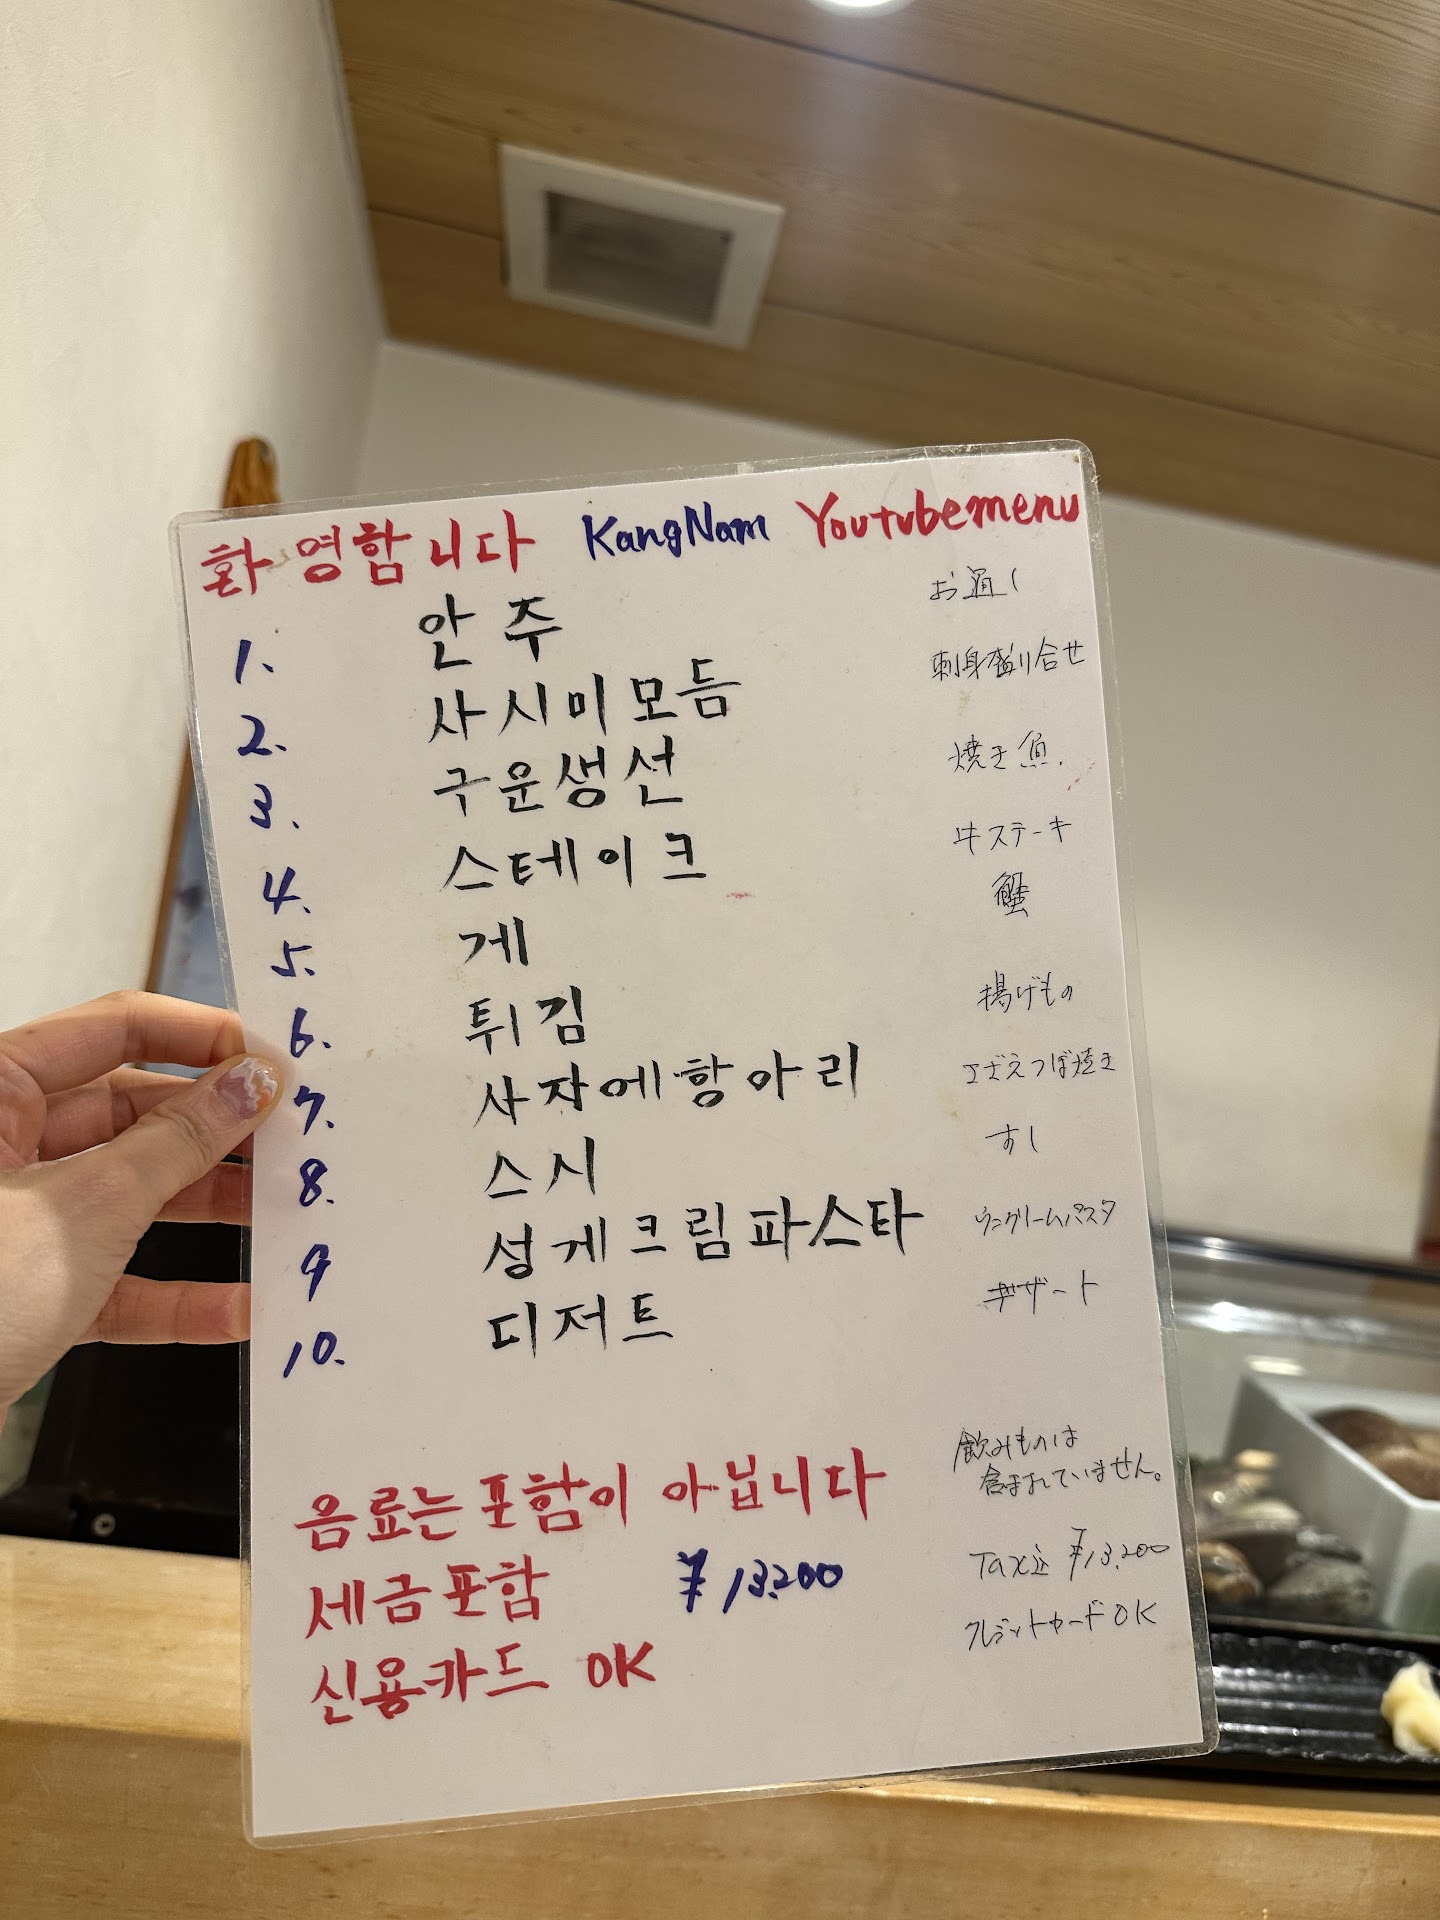 환영합니다 KangNam Youtubemenu
1. 안주 お通し
2. 사시미모듬 刺身盛り合せ
3. 구운생선 焼き魚.
4. 스테이크 牛ステーキ
5. 게 蟹
6. 튀김 揚げもの
7. 사자에항아리 さざえつぼ焼き
8. 스시 すし
9 성게크림파스타 ウニクリームパスタ
10. 디저트 デザート
음료는포함이 아닙니다 飲みものは
含まれていません。
세금포함 ¥13.200 Tax込 ¥13.200
신용카드 OK クレジットカードOK